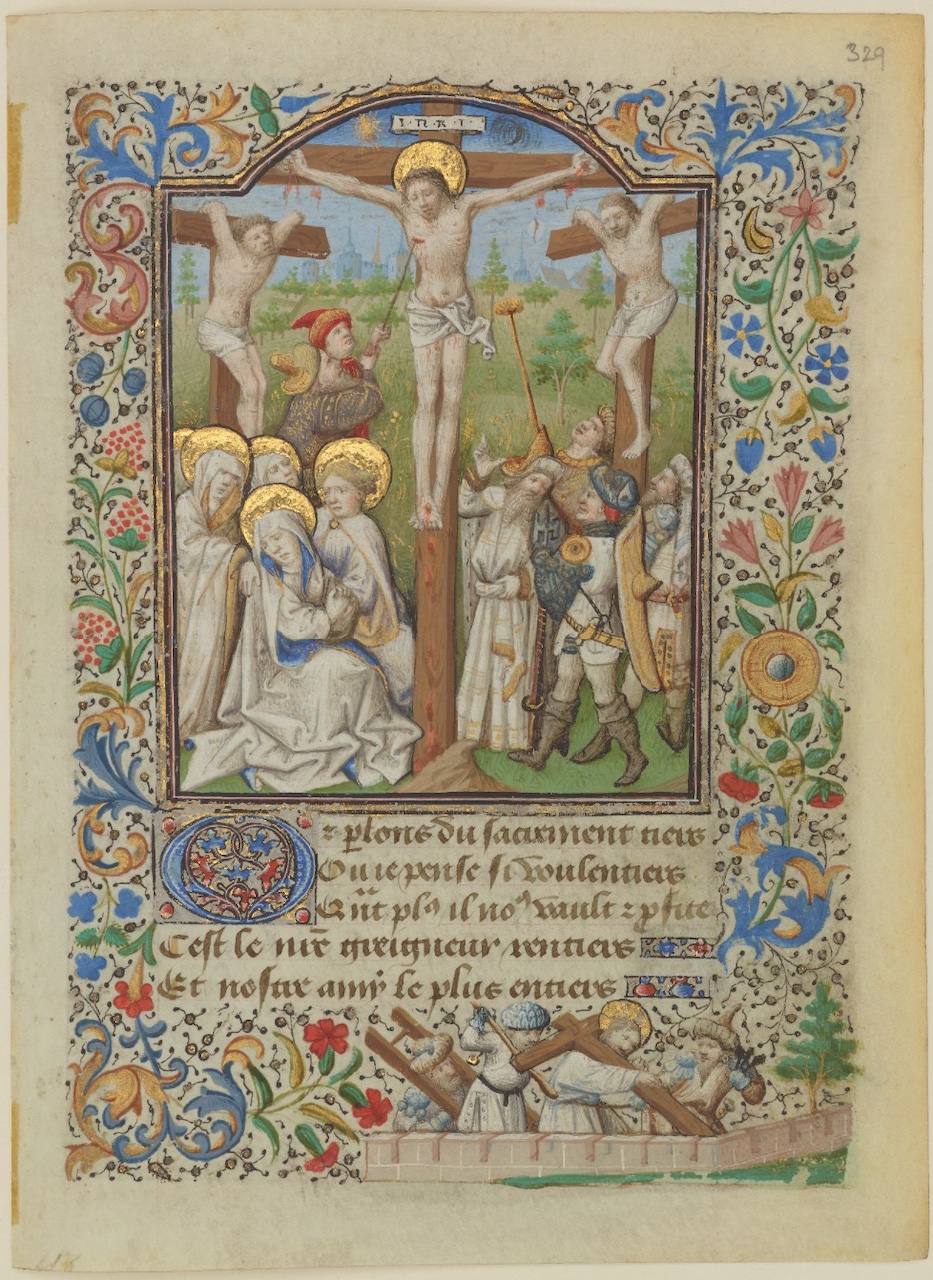 329
I·N·R·I·
Or ꝑlons du sacrement tiers
Ou ie pense si voulentiers
Qͣnt plꝰ il noꝰ vault ⁊ ꝓfite
Cest le nr̄e greigneur rentiers
Et nostre amy le plus entiers